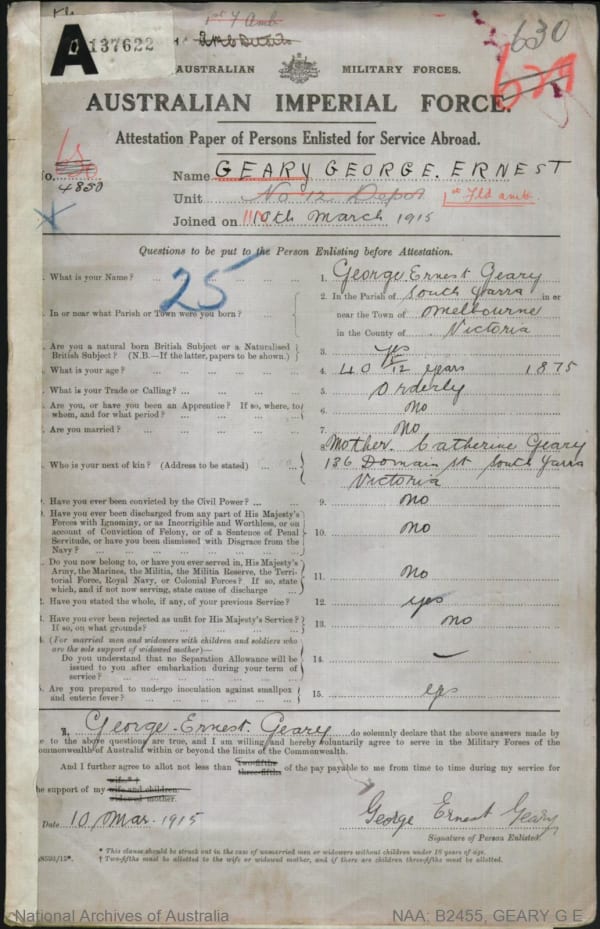 1st F Amb
A
137622
630
629
AUSTRALIAN MILITARY FORCES.
AUSTRALIAN IMPERIAL FORCE.
Attestation Paper of Persons Enlisted for Service Abroad.
No. 4850
Name GEARY GEORGE. ERNEST
Unit No 12 Depot 1st Fld amb.
Joined on 10th March 1915
Questions to be put to the Person Enlisting before Attestation.
25
. What is your Name? ... 1. George Ernest Geary
. In or near what Parish or Town were you born? ... 2. In the Parish of South Yarra in or
near the Town of Melbourne
in the County of Victoria
. Are you a natural born British Subject or a Naturalised
British Subject? (N.B.—If the latter, papers to be shown.) 3. yes
. What is your age? ... 4. 40 5/12 years 1875
. What is your Trade or Calling? ... 5. Orderly
. Are you, or have you been an Apprentice? If so, where, to
whom, and for what period? ... 6. No
. Are you married? ... 7. No
. Who is your next of kin? (Address to be stated) ... 8. Mother. Catherine Geary
136 Domain St South Yarra
Victoria
. Have you ever been convicted by the Civil Power? ... 9. no
. Have you ever been discharged from any part of His Majesty's
Forces with Ignominy, or as Incorrigible and Worthless, or on
account of Conviction of Felony, or of a Sentence of Penal
Servitude, or have you been dismissed with Disgrace from the
Navy? ... 10. no
. Do you now belong to, or have you ever served in, His Majesty's
Army, the Marines, the Militia, the Militia Reserve, the Terri-
torial Force, Royal Navy, or Colonial Forces? If so, state
which, and if not now serving, state cause of discharge ... 11. No
. Have you stated the whole, if any, of your previous Service? 12. yes
. Have you ever been rejected as unfit for His Majesty's Service?
If so, on what grounds? ... 13. no
. (For married men and widowers with children and soldiers who
are the sole support of widowed mother)—
Do you understand that no Separation Allowance will be
issued to you after embarkation during your term of
service? ... 14. —
. Are you prepared to undergo inoculation against smallpox
and enteric fever? ... 15. yes
I, George Ernest Geary do solemnly declare that the above answers made by
me to the above questions are true, and I am willing and hereby voluntarily agree to serve in the Military Forces of the
Commonwealth of Australia within or beyond the limits of the Commonwealth.
And I further agree to allot not less than two-fifths three-fifths of the pay payable to me from time to time during my service for
the support of my wife * † wife and children. widowed mother.
Date 10, Mar. 1915 George Ernest Geary
Signature of Person Enlisted.
* This clause should be struck out in the case of unmarried men or widowers without children under 18 years of age.
† Two-fifths must be allotted to the wife or widowed mother, and if there are children three-fifths must be allotted.
National Archives of Australia NAA: B2455, GEARY G E